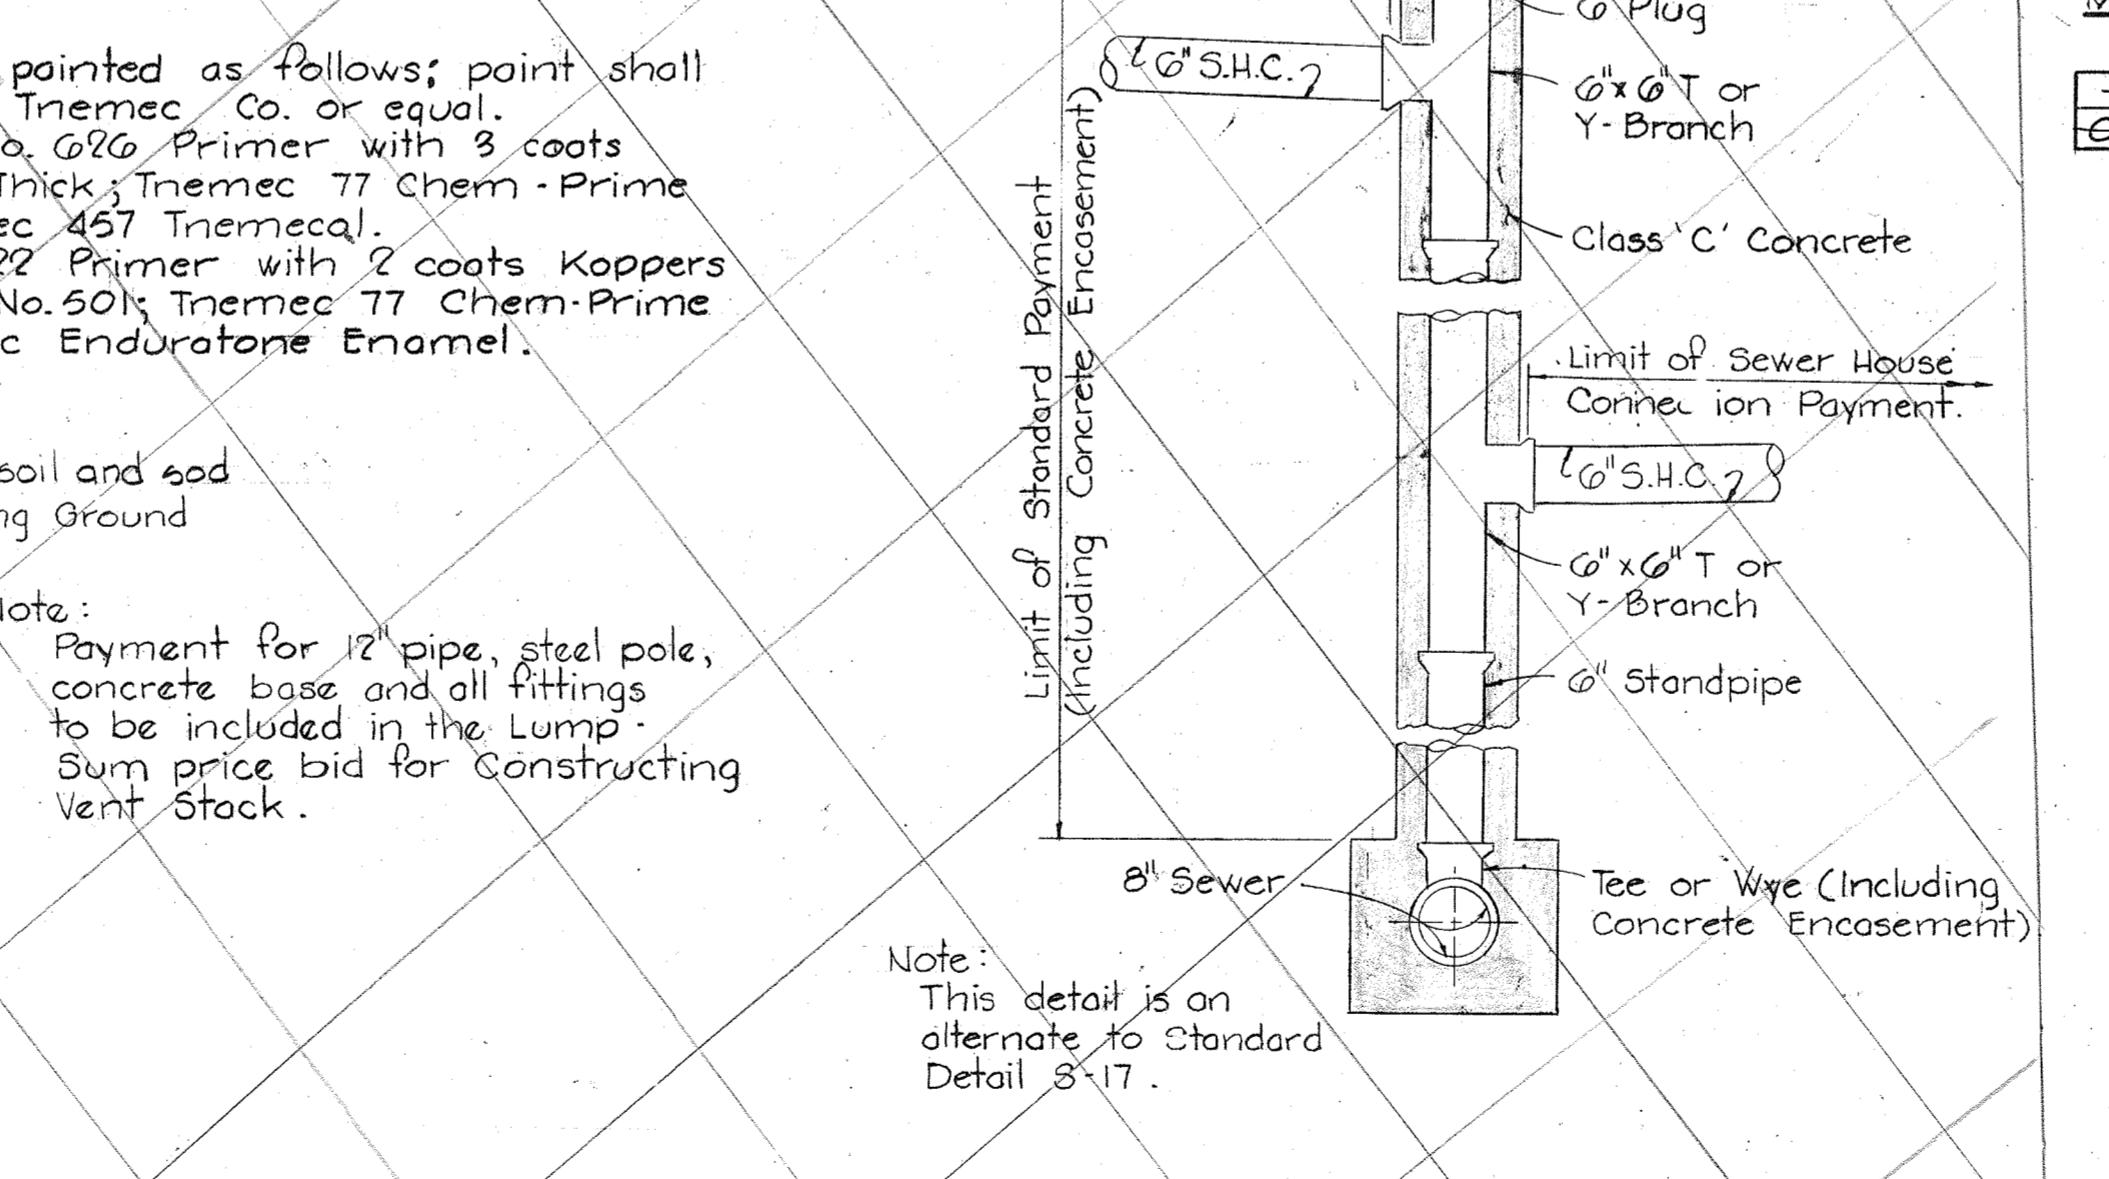 painted as follows; paint shall
Tnemec Co. or equal.
o. 626 Primer with 3 coats
Thick; Tnemec 77 Chem-Prime
ec 457 Tnemecal.
22 Primer with 2 coats Koppers
No. 501; Tnemec 77 Chem-Prime
c Enduratone Enamel.
soil and sod
ng Ground
Note:
Payment for 12" pipe, steel pole,
concrete base and all fittings
to be included in the Lump-
Sum price bid for Constructing
Vent Stack.
Limit of Standard Payment
(Including Concrete Encasement)
6" Plug
6" S.H.C.
6"x6" T or
Y-Branch
Class 'C' Concrete
Limit of Sewer House
Connec ion Payment.
6" S.H.C.
6"x6" T or
Y-Branch
6" Standpipe
8" Sewer
Tee or Wye (Including
Concrete Encasement)
Note:
This detail is an
alternate to Standard
Detail S-17.